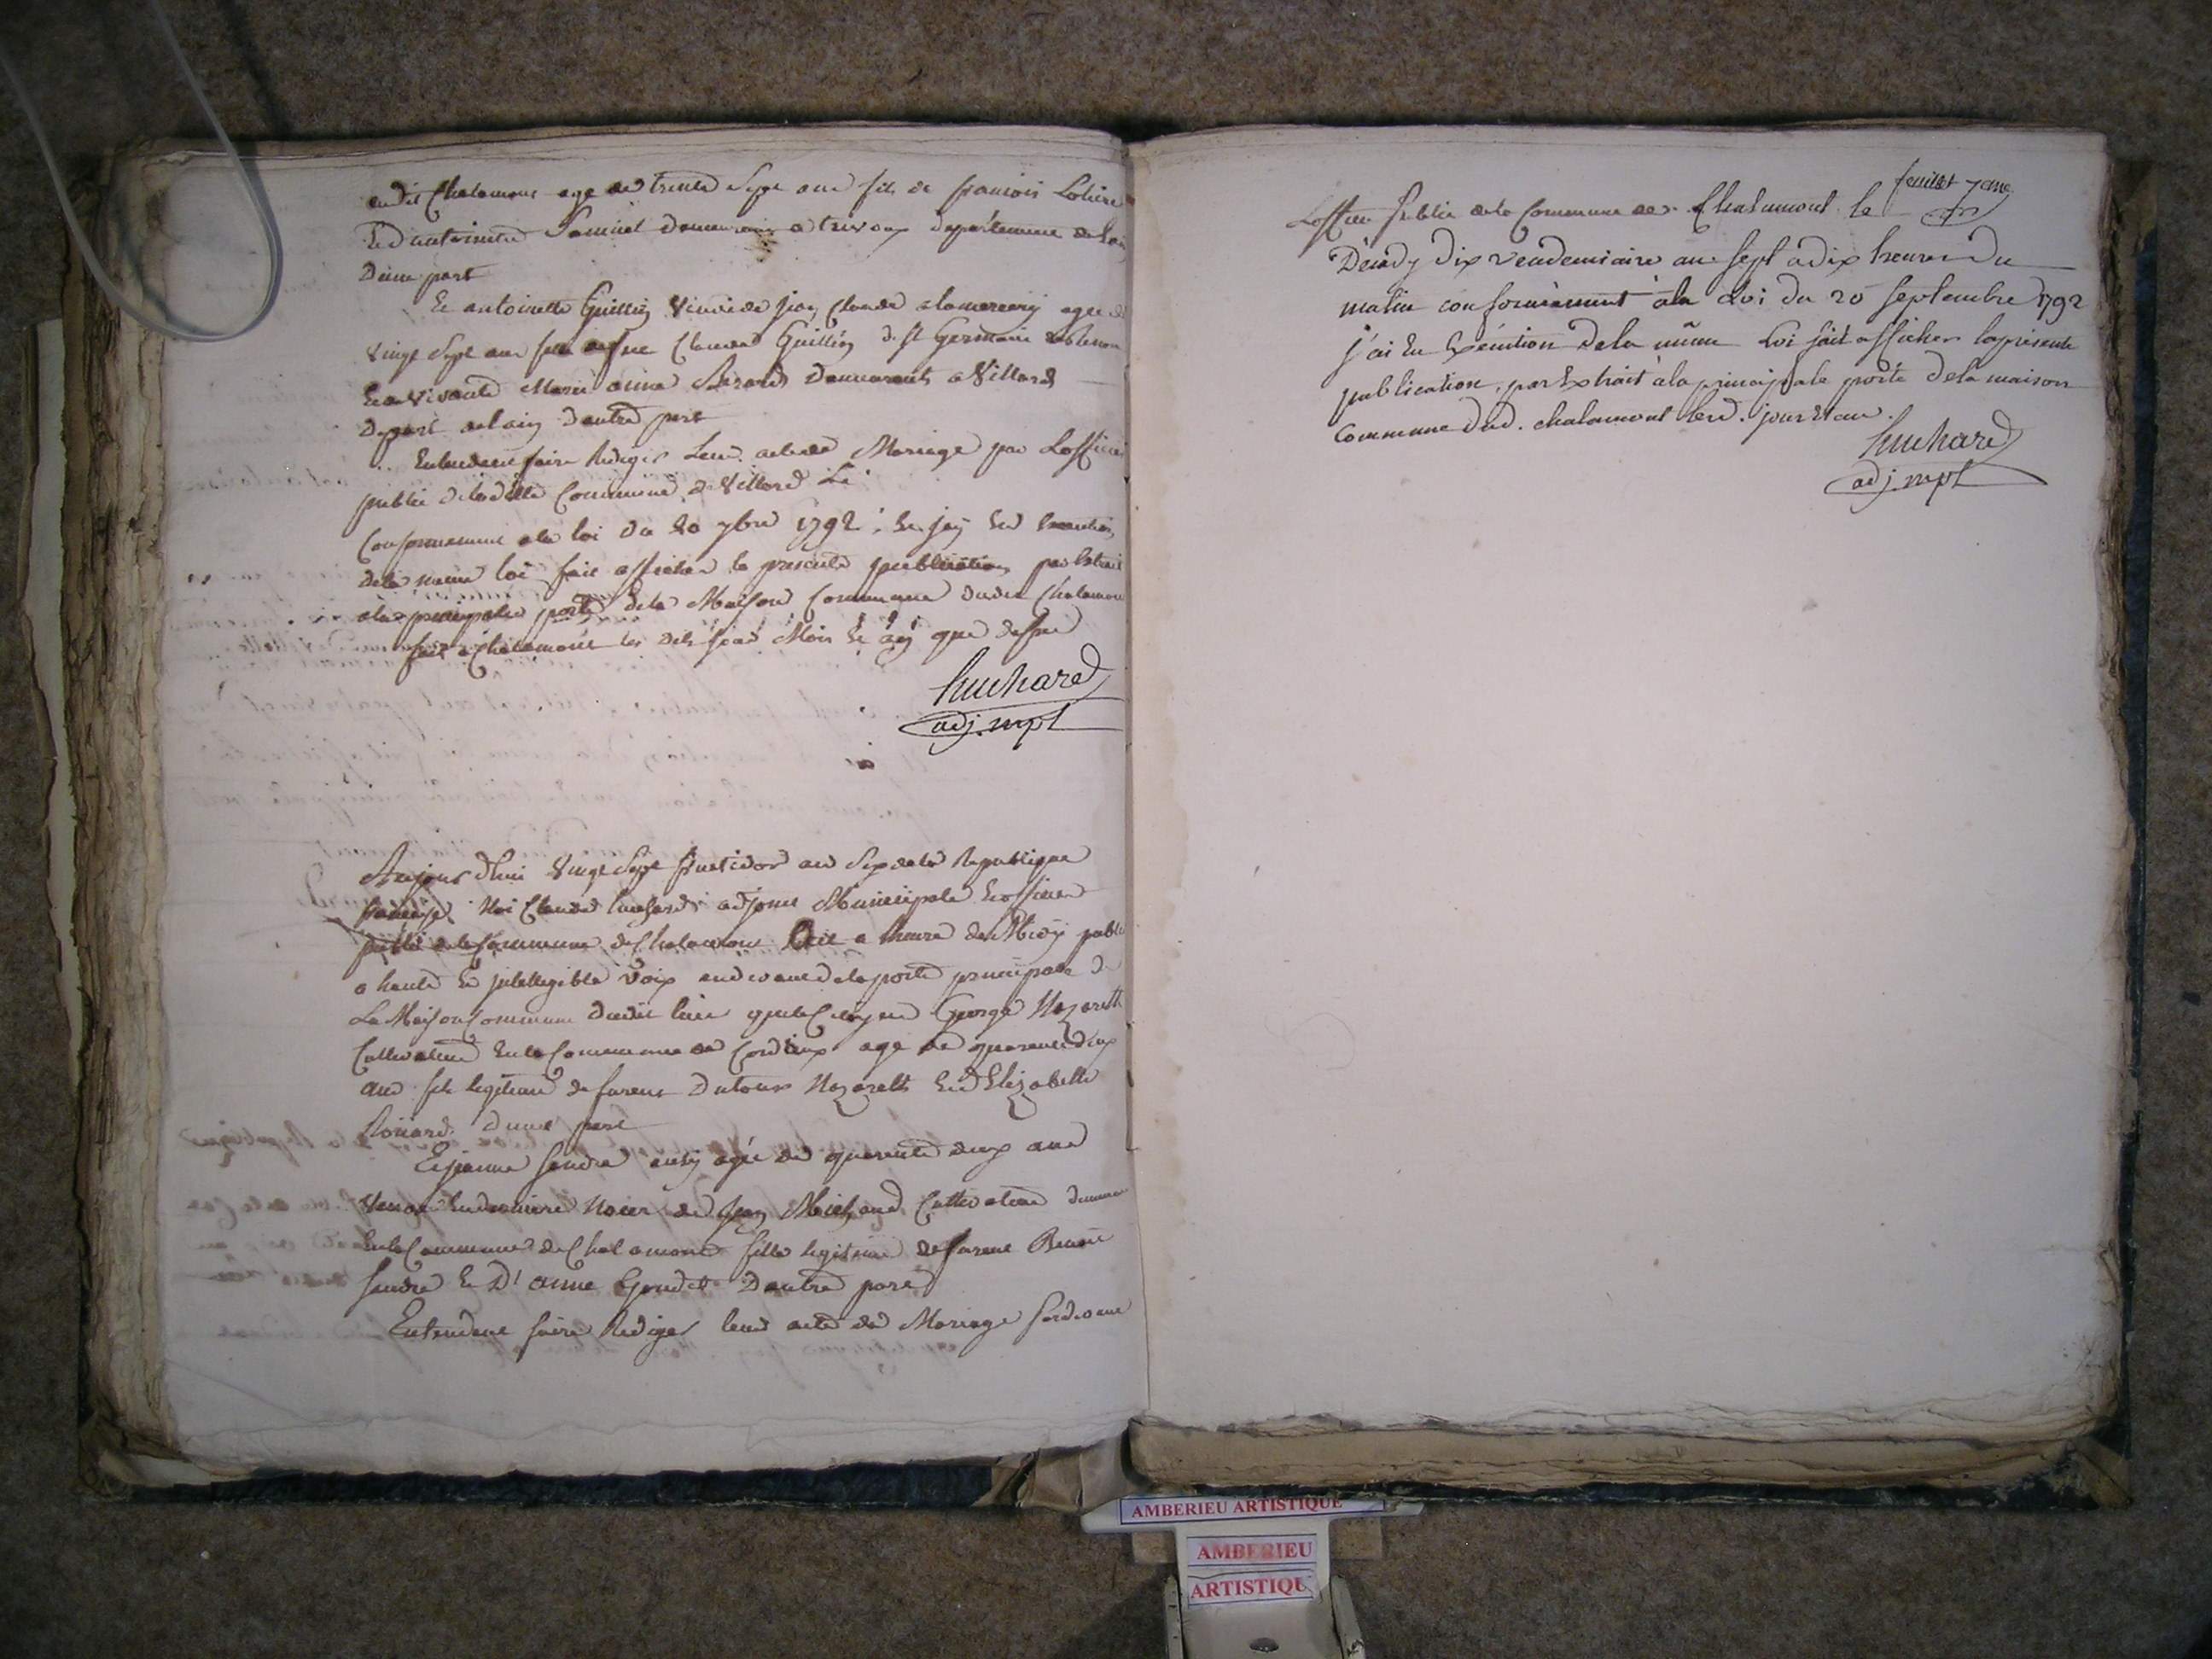 audit Chalamont age de trente Sept ans fils de francois
Et d antoinette demeurant a trevoux departement de Lain
Dune part
Et antoinette Guillin veuve de Jean Claude agee de
vingt Sept ans fille de feue Claude Guillin d. St Germain
Et de vivante Marie anne demeurants a Villard
Depart. de lain Dautre part
Entendent faire Rediger Leur acte de Mariage par Lofficier
public de laditte Commune de Villard Le
Conformement a la loi du 20 7bre 1792. Et jay En Execution
de la meme loi fait afficher la presente publication par Extrait
a la principale porte de la Maison Commune dudit Chalamont
fait a Chalamont les dits jour Mois Et an que dessus
huchard
adj. mpl
Aujourdhui vingt Sept fructidor an Six de la Republique
francaise Moi Claude huchard adjoint Municipale Et officier
public de la Commune de Chalamont a heure de Midy publié
a haute Et intelligible voix audevant de la porte principale de
La Maison Commune dudit lieu que le Citoyen George Nazareth
Cultivateur En la Commune de Cordieux age de quarente deux
ans fils legitime de furent Nazareth Et d Elizabette
dune part
Et jeanne Sandre aussy agée de quarente deux ans
veuve En derniere Noces de Jean Michaud Cultivateur
En la Commune de Chalamont fille legitime de furent Benoit
Sandre Et D' anne Dautre part
Entendent faire Rediger leurs acte de Mariage pardevant
feuillet 7eme
Lofficier Public de la Commune de Chalamont le
Décady Dix vendemiaire an Sept a dix heures Du
matin conformement à la Loi du 20 septembre 1792
j'ai En Exécution De la même Loi fait afficher la présente
publication, par Extrait à la principale porte De la maison
Commune Dud. chalamont lesd. jour Et an.
huchard
adj. mpl
AMBERIEU ARTISTIQUE
AMBERIEU
ARTISTIQU